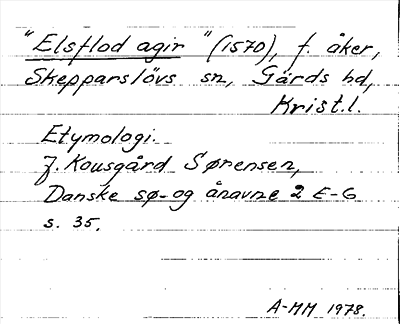 "Elsflod agir" (1570), f. åker,
Skepparslövs sn, Gärds hd,
Krist.l.
Etymologi.
J. Kousgård Sørensen,
Danske sø- og ånavne 2 E-G
s. 35.
A-MM 1978.